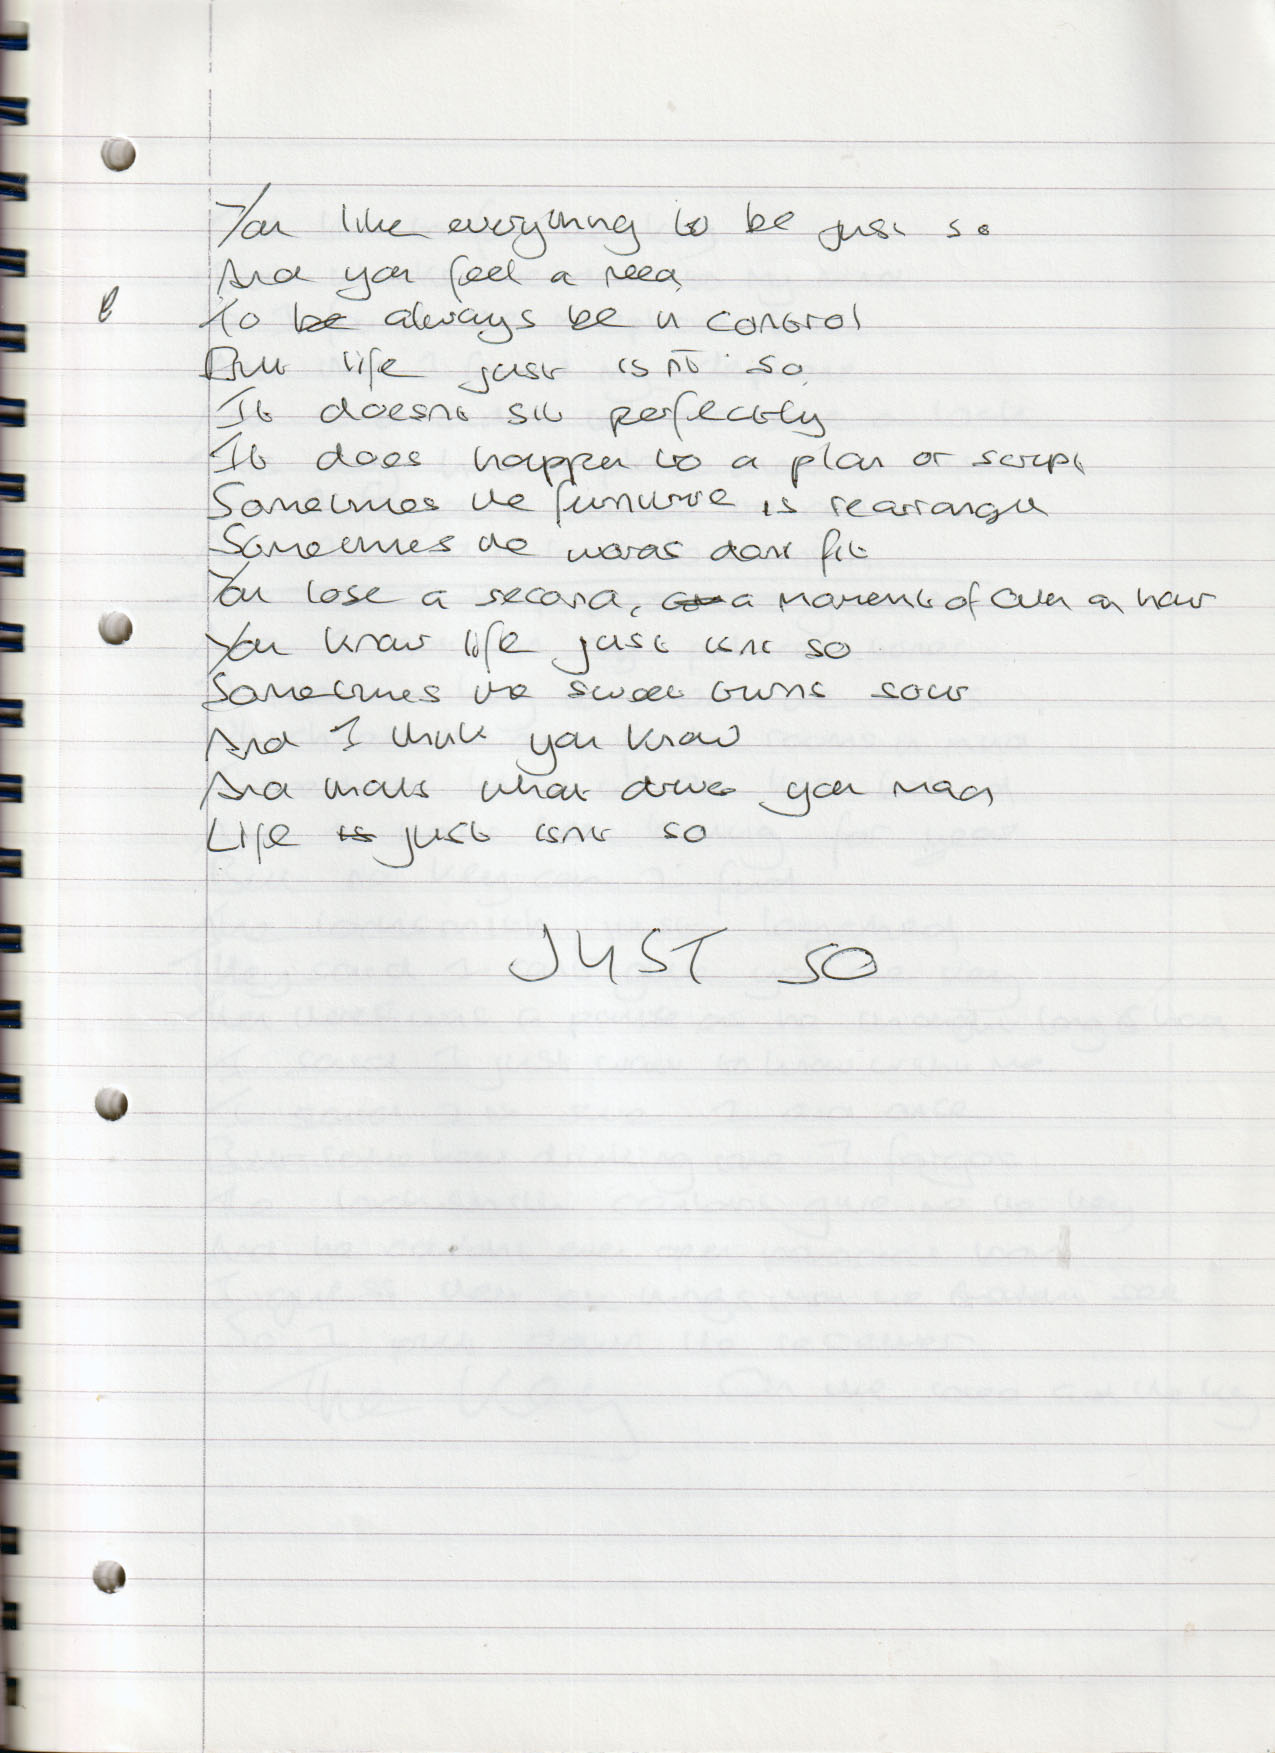 You like everything to be just so
And you feel a need
To be always be in control
But life just isnt so
It doesnt sit perfectly
It does happen to a plan or script
Sometimes the furniture is rearranged
Sometimes the words dont fit
You lose a second, a moment of even an hour
You know life just isnt so
Sometimes the sweet turns sour
And I think you know
And thats what drives you mad
Life is just isnt so
JUST SO